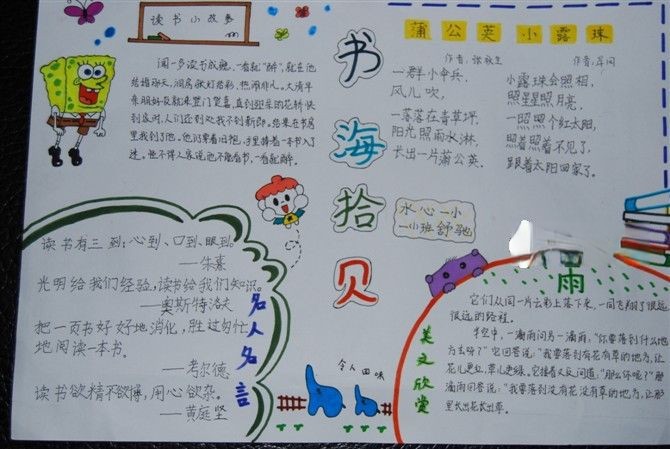 读书小故事
闻一多读书成瘾，一看就"醉"，就在他
结婚那天，洞房张灯结彩，热闹非凡。大清早
亲朋好友都来登门贺喜，直到迎亲的花轿快
到家时，人们还到处找不到新郎。结果在书房
里找到了他，他仍穿着旧袍，手里捧着一本书入了
迷。怪不得人家说他不能看书，一看就醉。
书海拾贝
蒲公英
作者：张秋生
一群小伞兵，
风儿吹，
一落落在青草坪，
阳光照雨水淋，
长出一片蒲公英。
小露珠
小露珠会照相，
照星星照月亮，
一照照个红太阳，
照着照着不见了，
跟着太阳回家了。
水心一小
一小班 舒驰
读书有三到：心到、口到、眼到。
——朱熹
光明给我们经验，读书给我们知识。
——奥斯特洛夫
把一页书好好地消化，胜过匆忙
地阅读一本书。
——考尔德
读书欲精不欲博，用心欲杂。
——黄庭坚
名人名言
令人回味
雨
美文欣赏
它们从同一片云彩上落下来，一同飞翔了很远
很远的路程。
半空中，一滴雨问另一滴雨，"你要落到什么地
方去呀？"它回答说："我要落到有花有草的地方，让
花儿更红，草儿更绿。它接着又反问道，"那么你呢？"那
滴雨回答说："我要落到没有花没有草的地方，让那
里长出花长出草。